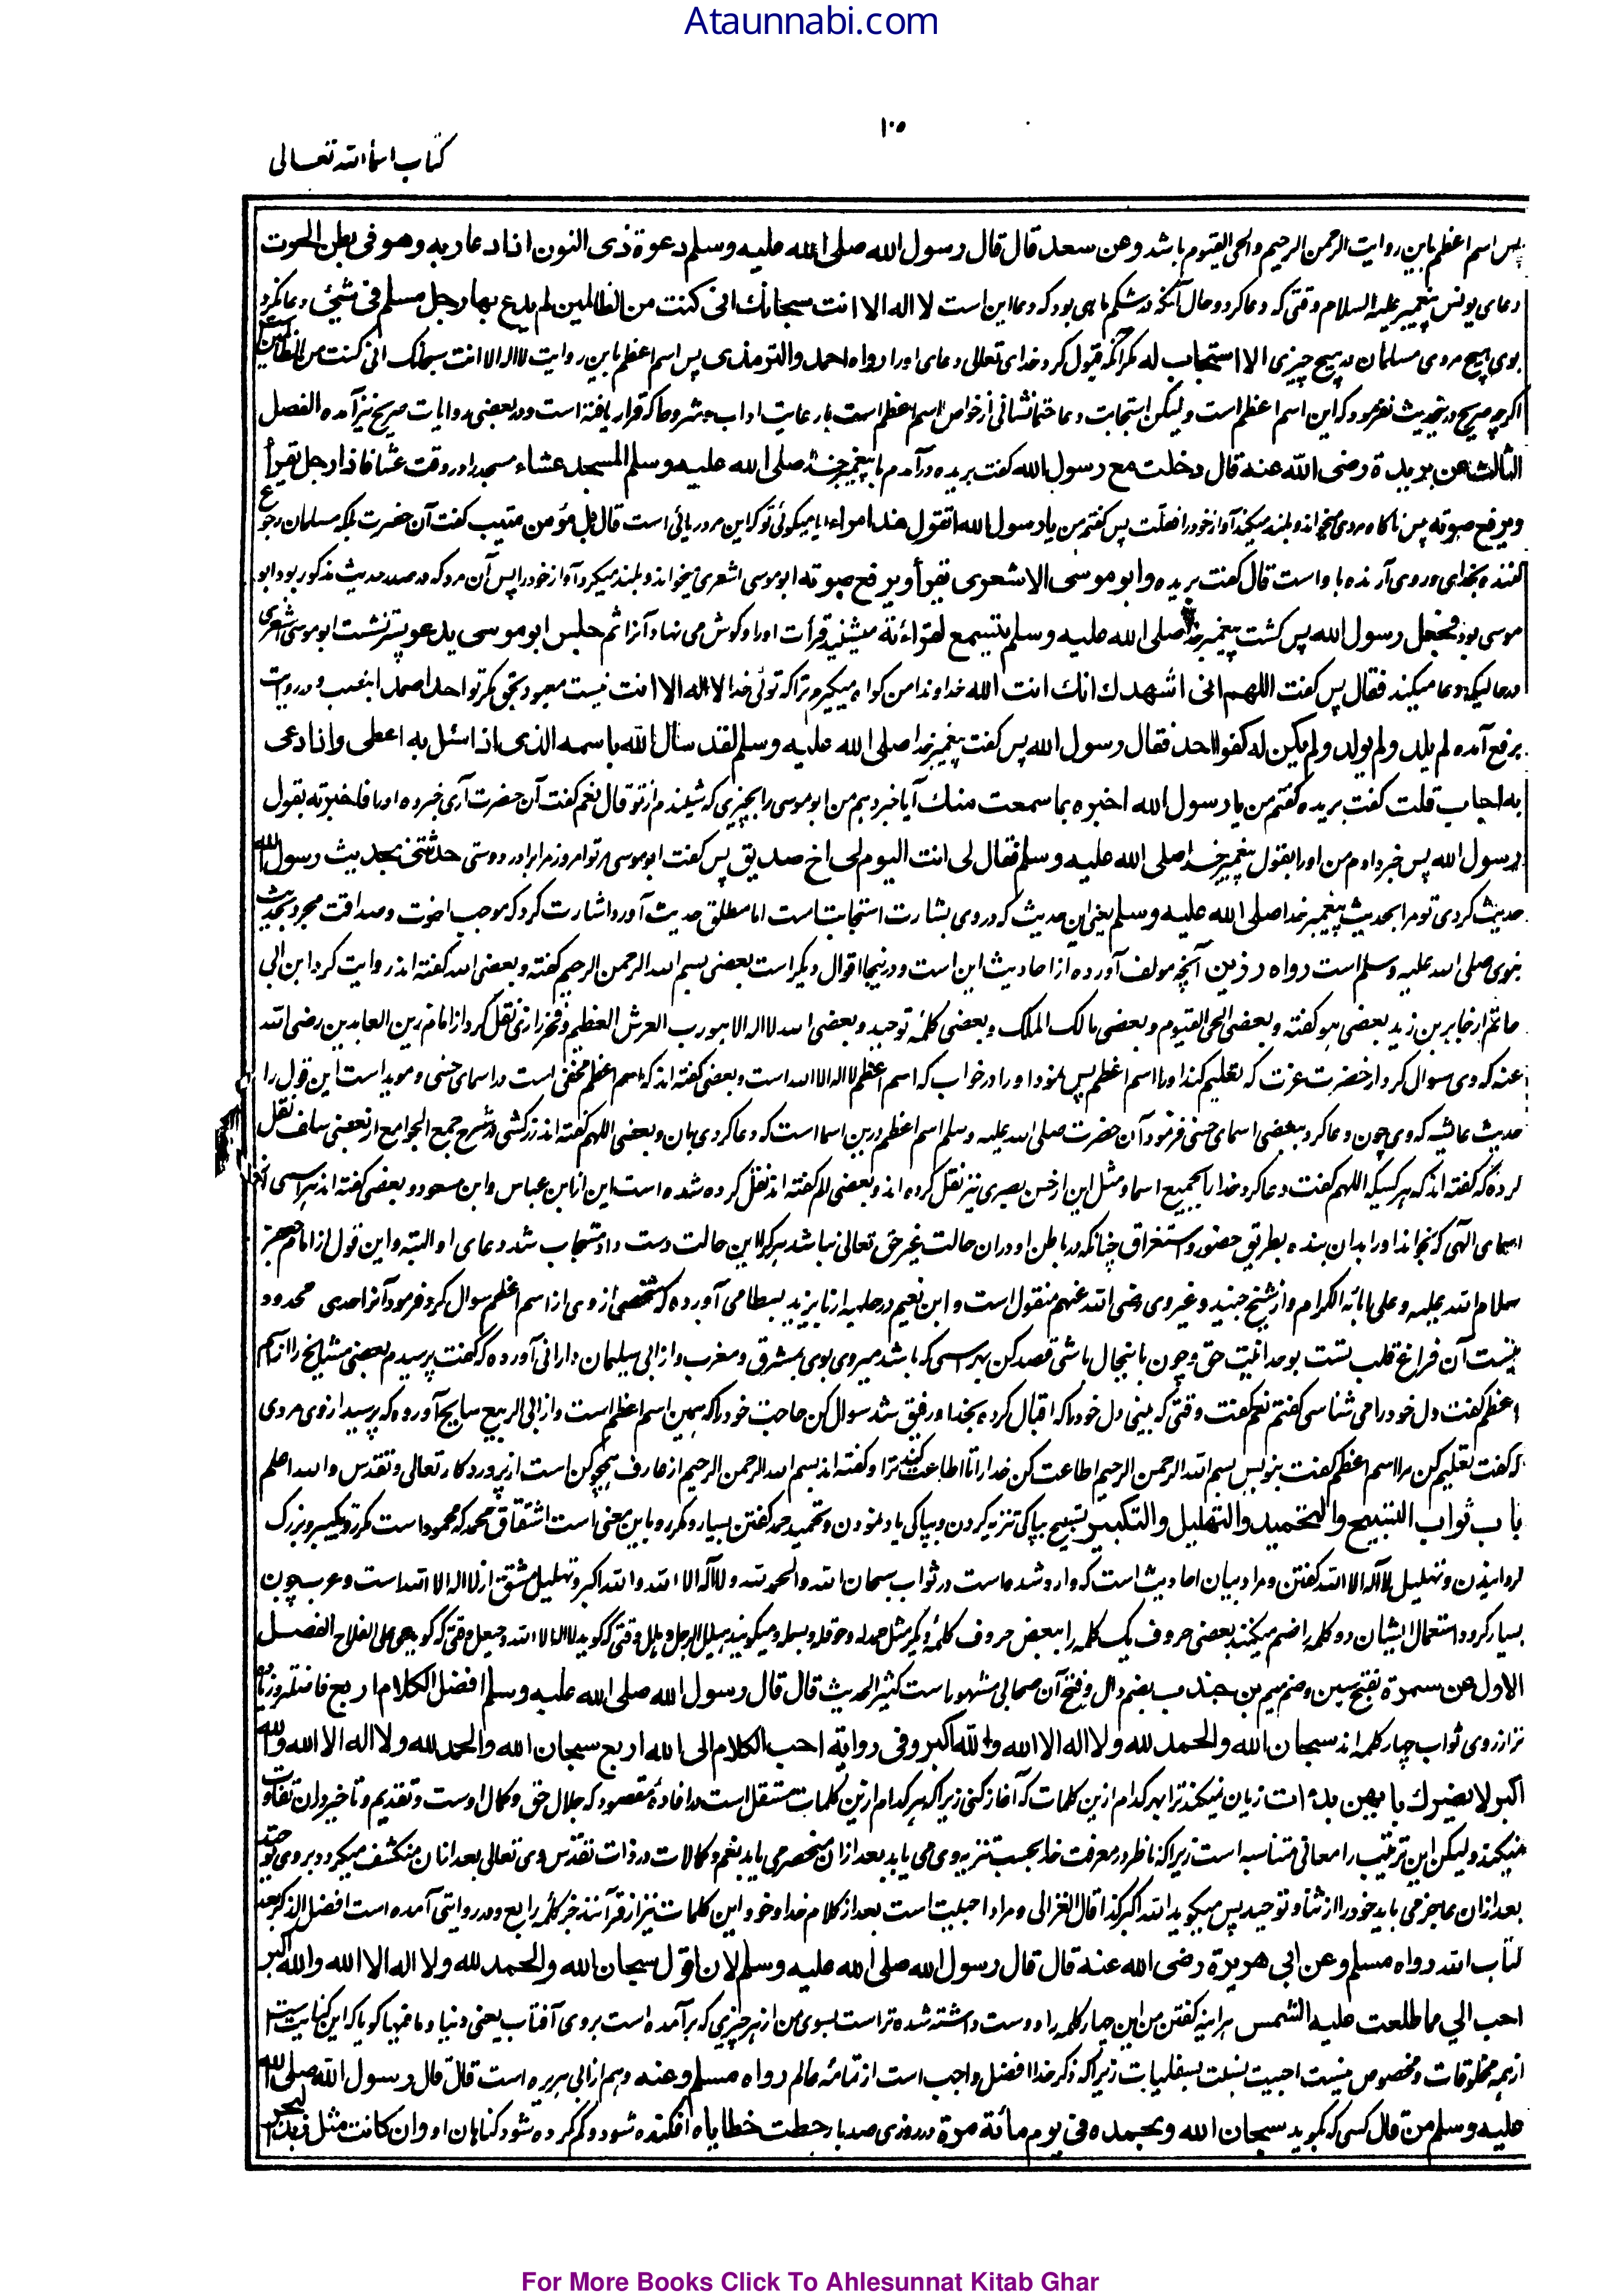 Ataunnabi.com
۱۰۵
کتاب اسماء الله تعالى
پس اسم اعظم باین روایت الرحمن الرحیم والحی القیوم باشد وعن سعد قال قال رسول الله صلى الله عليه وسلم دعوة ذى النون اذا دعا ربه وهو فى بطن الحوت
دعای یونس پیغمبر علیه السلام وقتی که دعا کرد و حال آنکه در شکم ماهی بود که دعا این است لا اله الا انت سبحانك انى كنت من الظالمين لم يدع بها رجل مسلم فى شئ دعا نکرد
بوی هیچ مردی مسلمان در هیچ چیزی الا استجاب له مگر آنکه قبول کرد خدای تعالی دعای او را رواه احمد والترمذى پس اسم اعظم باین روایت لا اله الا انت سبحانک انی کنت من الظالمین
اگرچه صریح درین حدیث نفرمود که این اسم اعظم است ولیکن استجابت دعا نشانی از خواص اسم اعظم است با رعایت آداب و شروط که قرار یافته است و در بعضی روایات صریح نیز آمده الفصل
الثالث عن بريدة رضى الله عنه قال دخلت مع رسول الله گفت بریده درآمدم با پیغمبر خدا صلى الله عليه وسلم المسجد عشاء مسجد را در وقت عشا فاذا رجل يقرأ
ويرفع صوته پس ناگاه مردی میخواند و بلند میکند آواز خود را فقلت پس گفتم من يا رسول الله اتقول هذا مراء آیا میگوئی تو که این مرد ریائی است قال بل مؤمن منيب گفت آن حضرت بلکه مسلمان رجوع
کننده بخدای و روی آرنده باو است قال گفت بریده وابو موسى الاشعرى يقرأ ويرفع صوته ابو موسی اشعری میخواند و بلند میکرد آواز خود را پس آن مرد که در صدر حدیث مذکور بود ابو
موسی بود فجعل رسول الله پس گشت پیغمبر خدا صلى الله عليه وسلم يتسمع لقراءته میشنید قرأت او را و گوش می نهاد آنرا ثم جلس ابو موسى يدعو پستر نشست ابو موسی اشعری
در حالیکه دعا میکند فقال پس گفت اللهم انى اشهدك انك انت الله خداوندا من گواه میگیرم ترا که توئی خدا لا اله الا انت نیست معبود بحق مگر تو احدا صمدا بنصب و در روایت
برفع آمده لم يلد ولم يولد ولم يكن له كفوا احد فقال رسول الله پس گفت پیغمبر خدا صلى الله عليه وسلم لقد سأل الله باسمه الذى اذا سئل به اعطى واذا دعى
به اجاب قلت گفت بریده گفتم من يا رسول الله اخبره بما سمعت منك آیا خبر دهم من ابو موسی را بچیزی که شنیدم از تو قال نعم گفت آن حضرت آری خبر ده او را فاخبرته بقول
رسول الله پس خبر دادم من او را بقول پیغمبر خدا صلى الله عليه وسلم فقال لى انت اليوم لى اخ صديق پس گفت ابو موسی مرا تو امروز مرا برادر دوستی حدثتنى بحديث رسول الله
حدیث کردی تو مرا بحدیث پیغمبر خدا صلى الله عليه وسلم یعنی این حدیث که در وی بشارت استجابت است اما مطلق حدیث آورد اشارت کرد که موجب اخوت و صداقت مجرد حدیث
نبوی صلى الله عليه وسلم است رواه رزين آنچه مولف آورده از احادیث این است و درینجا اقوال دیگر است بعضی بسم الله الرحمن الرحیم گفته و بعضی الله گفته اند روایت کرد ابن ابی
حاتم از جابر بن زید بعضی هو گفته و بعضی الحی القیوم و بعضی مالک الملک و بعضی کلمه توحید و بعضی الله لا اله الا هو رب العرش العظیم و فخر رازی نقل کرد از امام زین العابدین رضی الله
عنه که وی سوال کرد از حضرت عزت که تعلیم کند او را اسم اعظم پس نمود او را در خواب که اسم اعظم لا اله الا الله است و بعضی گفته اند که اسم اعظم مخفی است در اسمای حسنی و موید است این قول را
حدیث عائشه که وی چون دعا کرد ببعضی اسمای حسنی فرمود آن حضرت صلى الله عليه وسلم اسم اعظم درین اسما است که دعا کردی بآن و بعضی اللهم گفته اند زرکشی در شرح جمع الجوامع از بعضی سلف نقل
کرده که گفته اند که هر کسیکه اللهم گفت دعا کرد خدا را بجمیع اسما و مثل این از حسن بصری نیز نقل کرده اند و بعضی الم گفته اند نقل کرده شده است این از ابن عباس و ابن مسعود و بعضی گفته اند هر اسمی از
اسمای الهی که بخواند او را بدان بنده بطریق حضور و استغراق چنانکه در باطن او دران حالت غیر حق تعالی نباشد هر کرا این حالت دست داد مستجاب شد دعای او البته و این قول از امام جعفر
سلام الله علیه و علی آبائه الکرام و از شیخ جنید و غیر وی رضی الله عنهم منقول است و ابن نعیم در حلیه از بایزید بسطامی آورده که شخصی از وی از اسم اعظم سوال کرد فرمود آنرا حدی محدود
نیست آن فراغ قلب تست بوحدانیت حق و چون باینحال باشی قصد کن بهر اسمی که باشد میروی بوی بمشرق و مغرب و از ابی سلیمان دارانی آورده که گفت پرسیدم بعضی مشایخ را از اسم
اعظم گفت دل خود را می شناسی گفتم نعم گفت وقتی که بینی دل خود را که اقبال کرده بخدا و رقیق شد سوال کن حاجت خود را که همین اسم اعظم است و از ابی الربیع سایح آورده که پرسید از وی مردی
که گفت تعلیم کن مرا اسم اعظم گفت بنویس بسم الله الرحمن الرحیم اطاعت کن خدا را تا اطاعت کنند ترا و گفته اند بسم الله الرحمن الرحیم از عارف همچو کن است از پروردگار تعالی و تقدس والله اعلم
باب ثواب التسبيح والتحميد والتهليل والتكبير تسبیح بپاکی تنزیه کردن و بپاکی یاد نمودن و تحمید حمد گفتن بسیار و مکرر و باین معنی است اشتقاق محمد که محمود است مکرر و تکبیر بزرگ
گردانیدن و تهلیل لا اله الا الله گفتن و مراد بیان احادیث است که وارد شده است در ثواب سبحان الله والحمد لله ولا اله الا الله والله اکبر و تهلیل مشتق از لا اله الا الله است و عرب چون
بسیار گردد استعمال ایشان دو کلمه را ضم میکنند بعضی حروف یک کلمه را ببعض حروف کلمه دیگر مثل حمدله و حوقله و بسمله و میگویند هیلل الرجل و هلل وقتی که گوید لا اله الا الله و حیعل وقتی که گوید حی علی الفلاح الفصل
الاول عن سمرة بفتح سین و ضم میم بن جندب بضم دال و فتح آن صحابی مشهور است کثیر الحدیث قال قال رسول الله صلى الله عليه وسلم افضل الكلام اربع فاضلترین
تر از روی ثواب چهار کلمه اند سبحان الله والحمد لله ولا اله الا الله والله اكبر وفى رواية احب الكلام الى الله اربع سبحان الله والحمد لله ولا اله الا الله والله
اكبر لا يضرك بايهن بدأت زیان نمیکند ترا بهر کدام ازین کلمات که آغاز کنی زیرا که هر کدام ازین کلمات مستقل است در افاده مقصود که جلال حق و کمال اوست و تقدیم و تاخیر دران تفاوت
نمیکند ولیکن این ترتیب را معانی متناسبه است زیرا که ناظر در معرفت خدا بحسب تنزیه وی می یابد بعد ازان منحصر می یابد نعم و کمالات در ذات تقدس وی تعالی بعد ازان منکشف میگردد بر وی توحید
بعد ازان عاجز می یابد خود را از ثنا و توحید پس میگوید الله اکبر کذا قال الغزالی و مراد احبیت است بعد از کلام خدا و خود این کلمات نیز از قرآنند جز کلمه رابع و در روایتی آمده است افضل الذکر بعد
کتاب الله رواه مسلم وعن ابى هريرة رضى الله عنه قال قال رسول الله صلى الله عليه وسلم لان اقول سبحان الله والحمد لله ولا اله الا الله والله اكبر
احب الي مما طلعت عليه الشمس هر آینه گفتن من این چهار کلمه را دوست داشته شده تر است بسوی من از هر چیزی که برآمده است بروی آفتاب یعنی دنیا و ما فیها گویا که این کنایت است
از همه مخلوقات و مخصوص نیست احبیت بنسبت بسفلیات زیرا که ذکر خدا افضل و احب است از تمامه عالم رواه مسلم وعنه و هم از ابی هریره است قال قال رسول الله صلى الله
عليه وسلم من قال کسی که گوید سبحان الله وبحمده فى يوم مائة مرة در روزی صد بار حطت خطاياه افکنده شود و کم کرده شود گناهان او وان كانت مثل زبد البحر
For More Books Click To Ahlesunnat Kitab Ghar